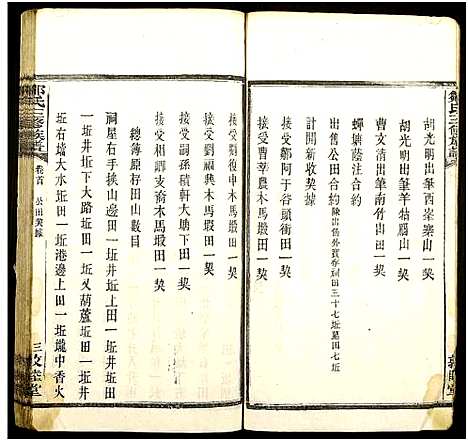 鄒氏三修族譜
胡光明出筆西峯寨山一契
胡光明出筆羊牯腦山一契
曹文清出筆南竹山田一契
蟬塘蔭注合約
出售公田合約除出售外實存祠田三十七坵墓田七坵
計開新收契據
接受鄒阿于谷頭衝田一契
接受曹莘農木馬塅田一契
接受劉福興木馬塅田一契
接受嗣孫積軒大塘下田一契
接受祠科支裔木馬塅田一契
總簿原积田山數目
祠屋右手挨山邊田一坵井坵上田一坵井
一坵井坵下大路坵田一坵又葫蘆坵田一坵井
坵右墈大水坵田一坵港邊上田一坵壠中香火
鄒氏三修族譜
卷首
公田契據
三
敦睦堂